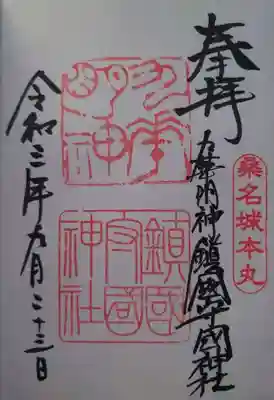 奉拝
桑名城本丸
九華明神 鎮國守國神社
九華明神
鎮國守國神社
令和三年九月二十三日